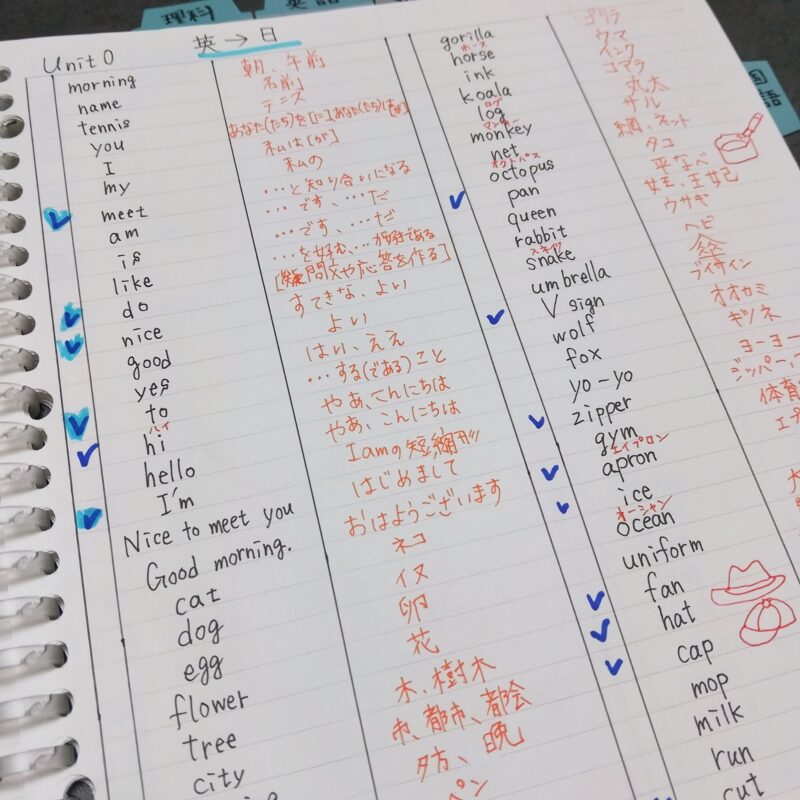 理科
英語
国語
Unit 0
英→日
morning
name
tennis
you
I
my
meet
am
is
like
do
nice
good
yes
to
ハイ
hi
hello
I'm
Nice to meet you
Good morning.
cat
dog
egg
flower
tree
city
朝、午前
名前
テニス
あなた(たち)を[に]、あなた(たち)は[が]
私は[が]
私の
…と知り合いになる
…です、…だ
…です、…だ
…を好む、…が好きである
[疑問文や応答を作る]
すてきな、よい
よい
はい、ええ
…する(である)こと
やあ、こんにちは
やあ、こんにちは
I amの短縮形
はじめまして
おはようございます
ネコ
イヌ
卵
花
木、樹木
市、都市、都会
夕方、晩
ペン
gorilla
ホース
horse
ink
koala
ログ
log
マンキー
monkey
net
オクトパス
octopus
pan
queen
rabbit
スネイク
snake
umbrella
V sign
wolf
fox
yo-yo
zipper
gym
エイプロン
apron
ice
オーシャン
ocean
uniform
fan
hat
cap
mop
milk
run
cut
ゴリラ
ウマ
インク
コアラ
丸太
サル
網、ネット
タコ
平なべ
女王、王妃
ウサギ
ヘビ
傘
ブイサイン
オオカミ
キツネ
ヨーヨー
ジッパー、
体育
エプ